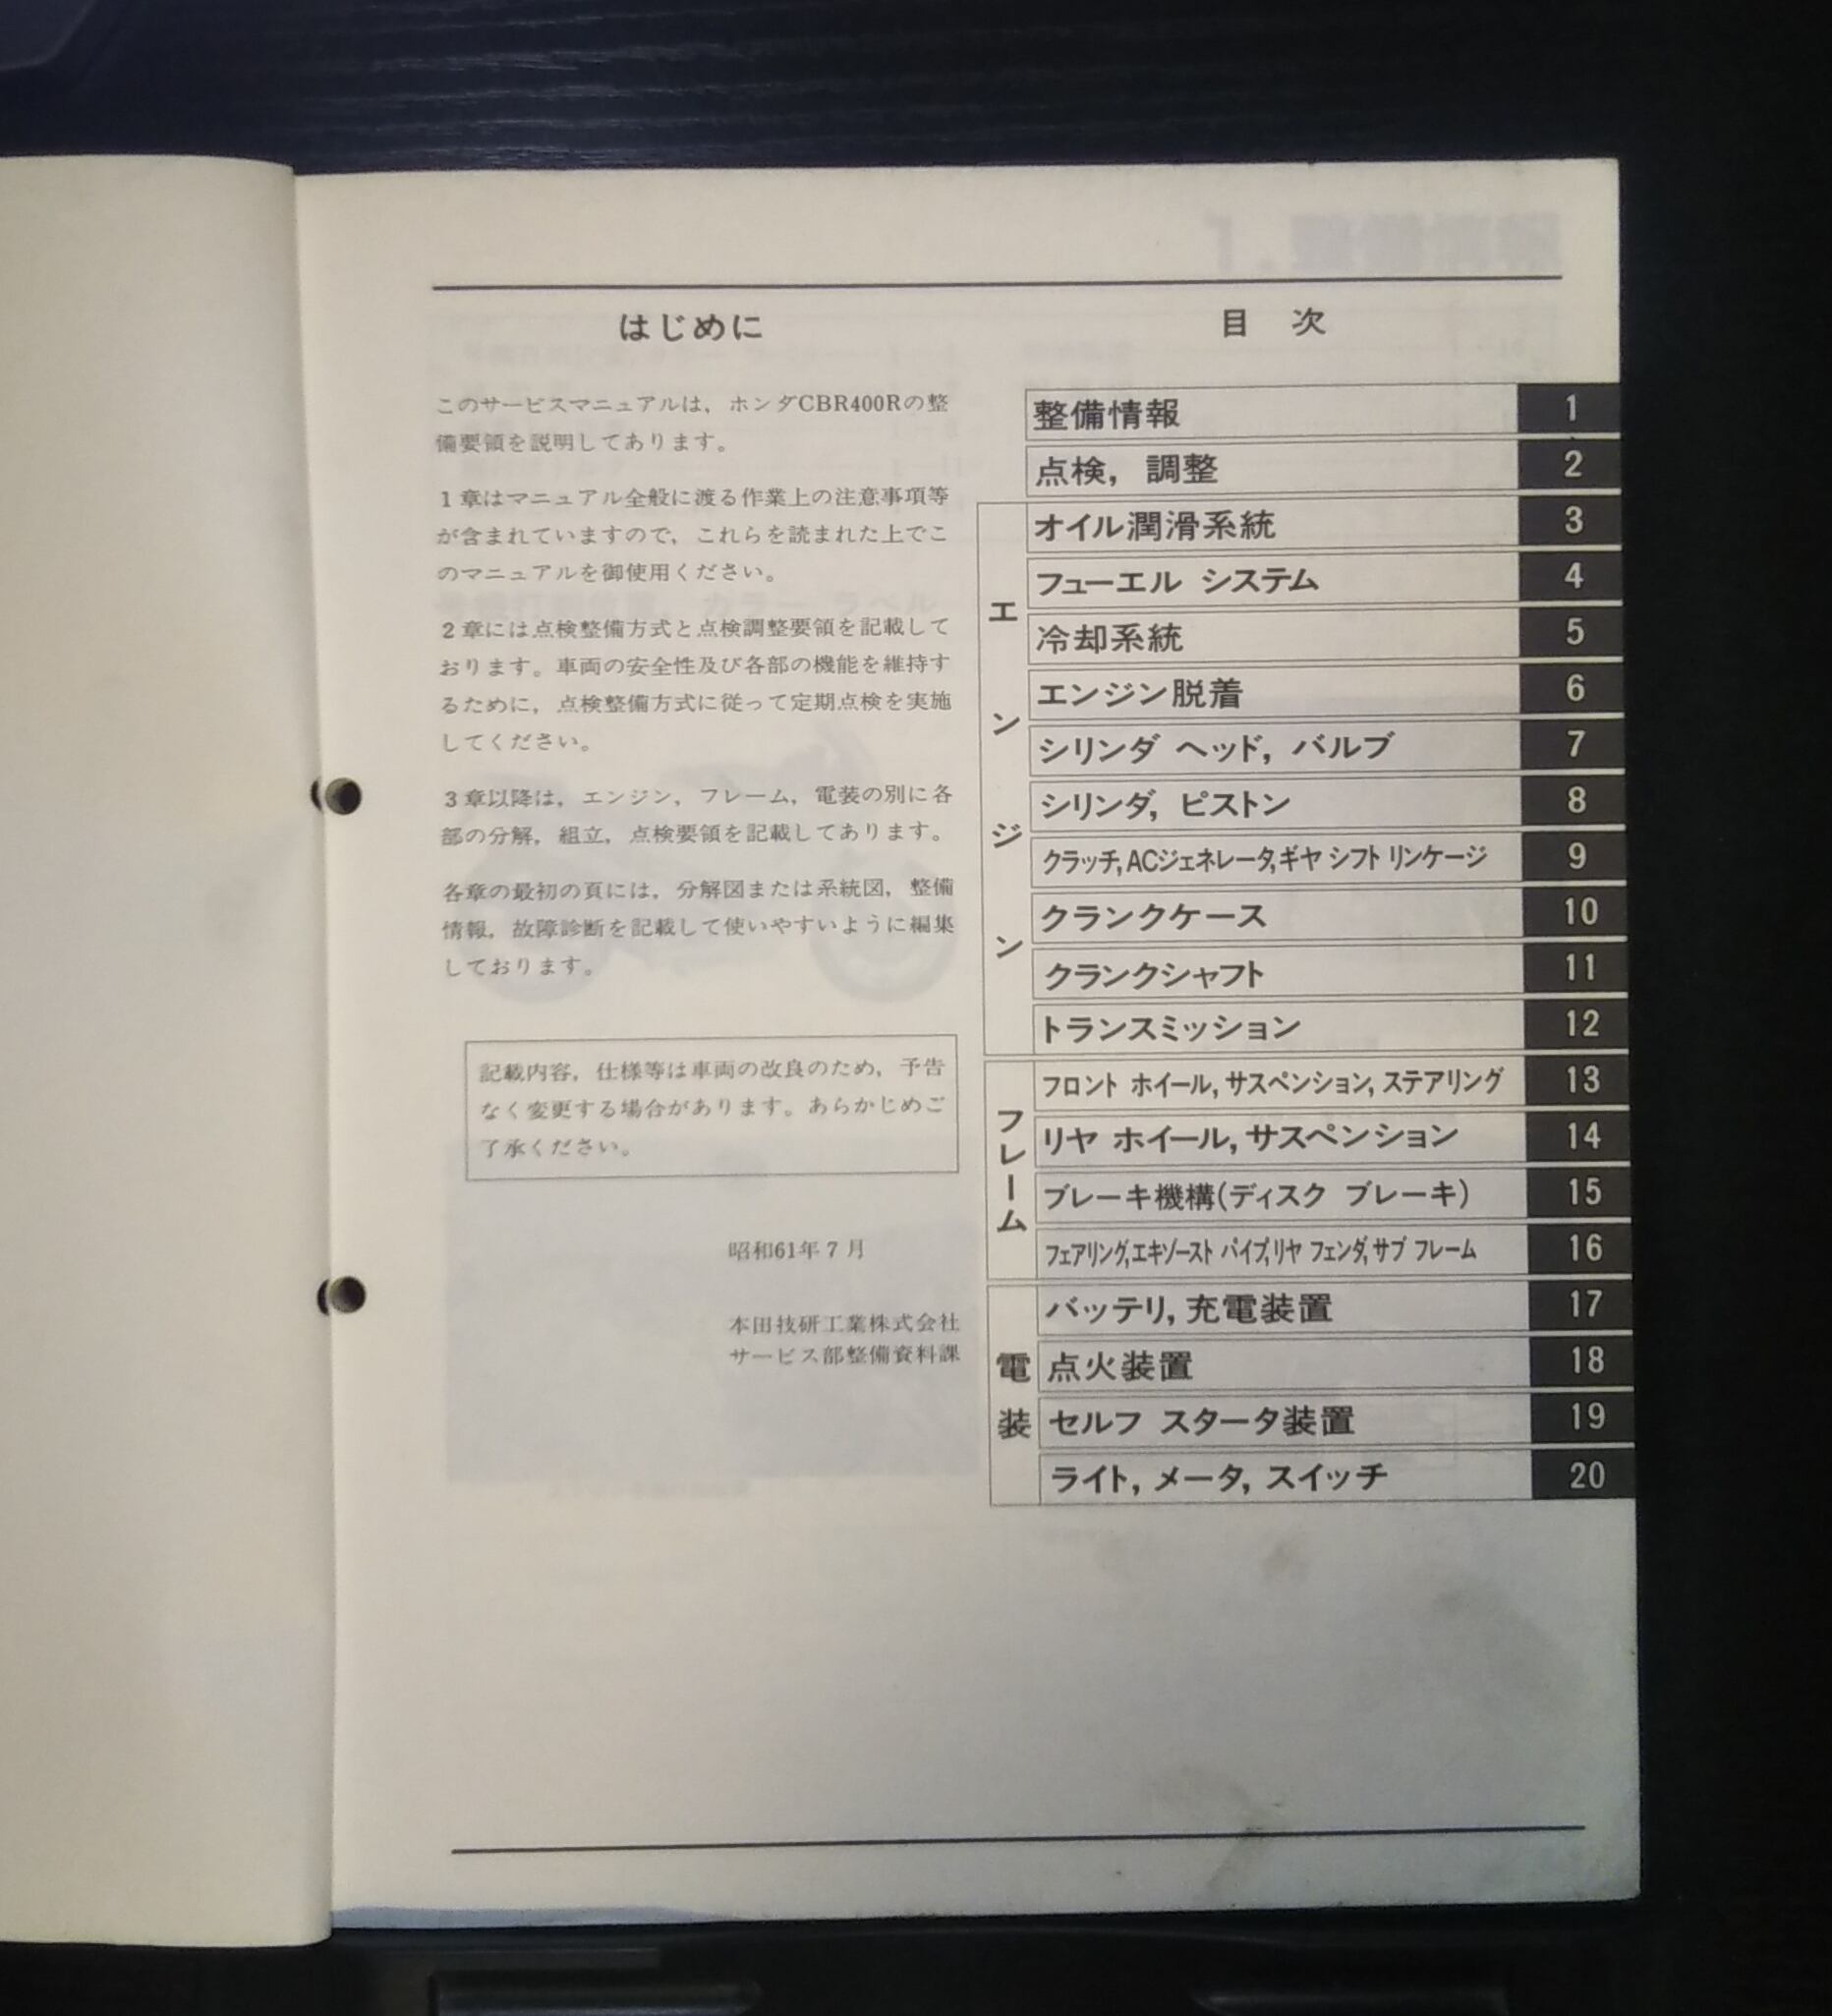 はじめに
このサービスマニュアルは，ホンダCBR400Rの整
備要領を説明してあります。
1章はマニュアル全般に渡る作業上の注意事項等
が含まれていますので，これらを読まれた上でこ
のマニュアルを御使用ください。
2章には点検整備方式と点検調整要領を記載して
おります。車両の安全性及び各部の機能を維持す
るために，点検整備方式に従って定期点検を実施
してください。
3章以降は，エンジン，フレーム，電装の別に各
部の分解，組立，点検要領を記載してあります。
各章の最初の頁には，分解図または系統図，整備
情報，故障診断を記載して使いやすいように編集
しております。
記載内容，仕様等は車両の改良のため，予告
なく変更する場合があります。あらかじめご
了承ください。
昭和61年7月
本田技研工業株式会社
サービス部整備資料課
目 次
整備情報 1
点検，調整 2
エンジン
オイル潤滑系統 3
フューエル システム 4
冷却系統 5
エンジン脱着 6
シリンダ ヘッド，バルブ 7
シリンダ，ピストン 8
クラッチ,ACジェネレータ,ギヤ シフト リンケージ 9
クランクケース 10
クランクシャフト 11
トランスミッション 12
フレーム
フロント ホイール,サスペンション,ステアリング 13
リヤ ホイール,サスペンション 14
ブレーキ機構(ディスク ブレーキ) 15
フェアリング,エキゾースト パイプ,リヤ フェンダ,サブ フレーム 16
電装
バッテリ,充電装置 17
点火装置 18
セルフ スタータ装置 19
ライト，メータ，スイッチ 20